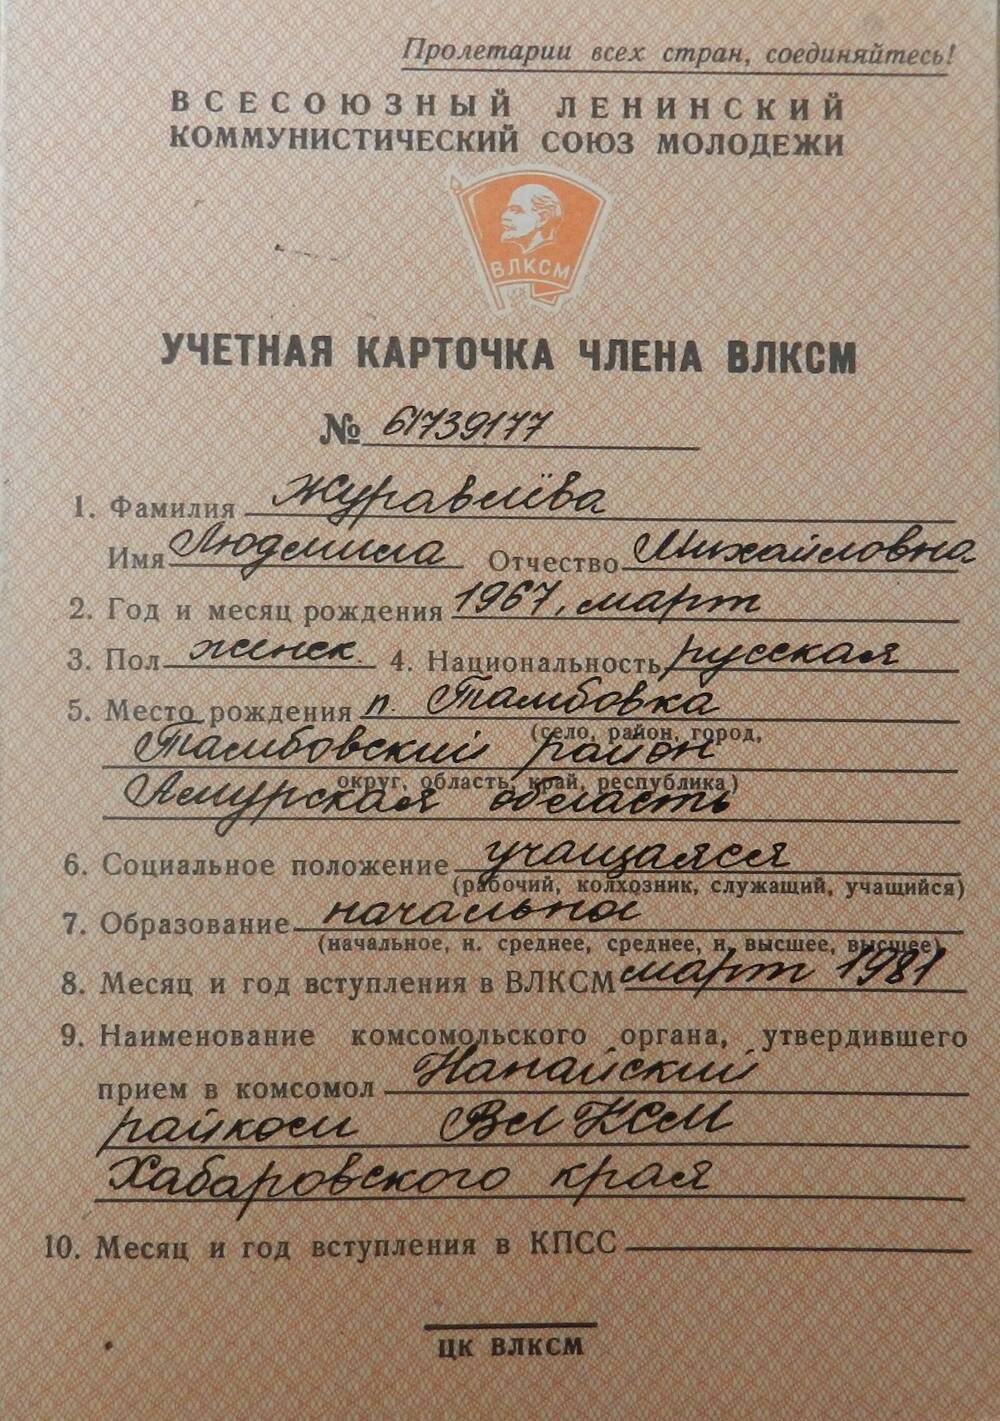 Пролетарии всех стран, соединяйтесь!
ВСЕСОЮЗНЫЙ ЛЕНИНСКИЙ
КОММУНИСТИЧЕСКИЙ СОЮЗ МОЛОДЕЖИ
ВЛКСМ
УЧЕТНАЯ КАРТОЧКА ЧЛЕНА ВЛКСМ
№ 61739177
1. Фамилия Журавлёва
Имя Людмила Отчество Михайловна
2. Год и месяц рождения 1967, март
3. Пол женск. 4. Национальность русская
5. Место рождения п. Тамбовка
(село, район, город,
Тамбовский район
округ, область, край, республика)
Амурская область
6. Социальное положение учащаяся
(рабочий, колхозник, служащий, учащийся)
7. Образование начальное
(начальное, н. среднее, среднее, н. высшее, высшее)
8. Месяц и год вступления в ВЛКСМ март 1981
9. Наименование комсомольского органа, утвердившего
прием в комсомол Нанайский
райком ВЛКСМ
Хабаровского края
10. Месяц и год вступления в КПСС
ЦК ВЛКСМ